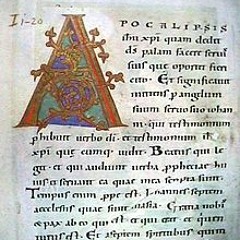 I 1-20
APOCALIPSIS
ihu xpi quam dedit
ds palam facere servis
suis que oportet fieri
cito. Et significavit
mittens p angelum
suum servo suo iohan
ni. qui testimonium
phibuit verbo di. et testimonium ihu
xpi que cumq; vidit. Beatus qui le
git. et qui audiunt verba prophetiae hui
us et servant ea quae in ea scripta sunt.
Tempus enim ppe est. Iohannes septem
ecclesiis quae sunt in asia. Gratia vobis
et pax ab eo qui est et qui erat et qui uen
turus est. Et a septem spiritibus qui